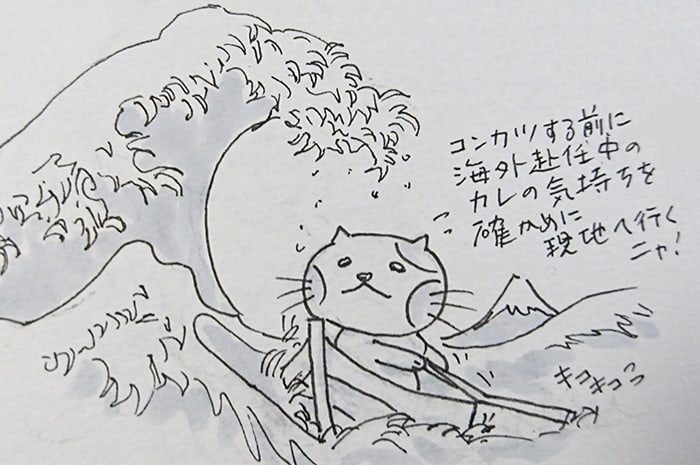 コンカツする前に
海外赴任中の
カレの気持ちを
確かめに
現地へ行く
ニャ!
キコキコ